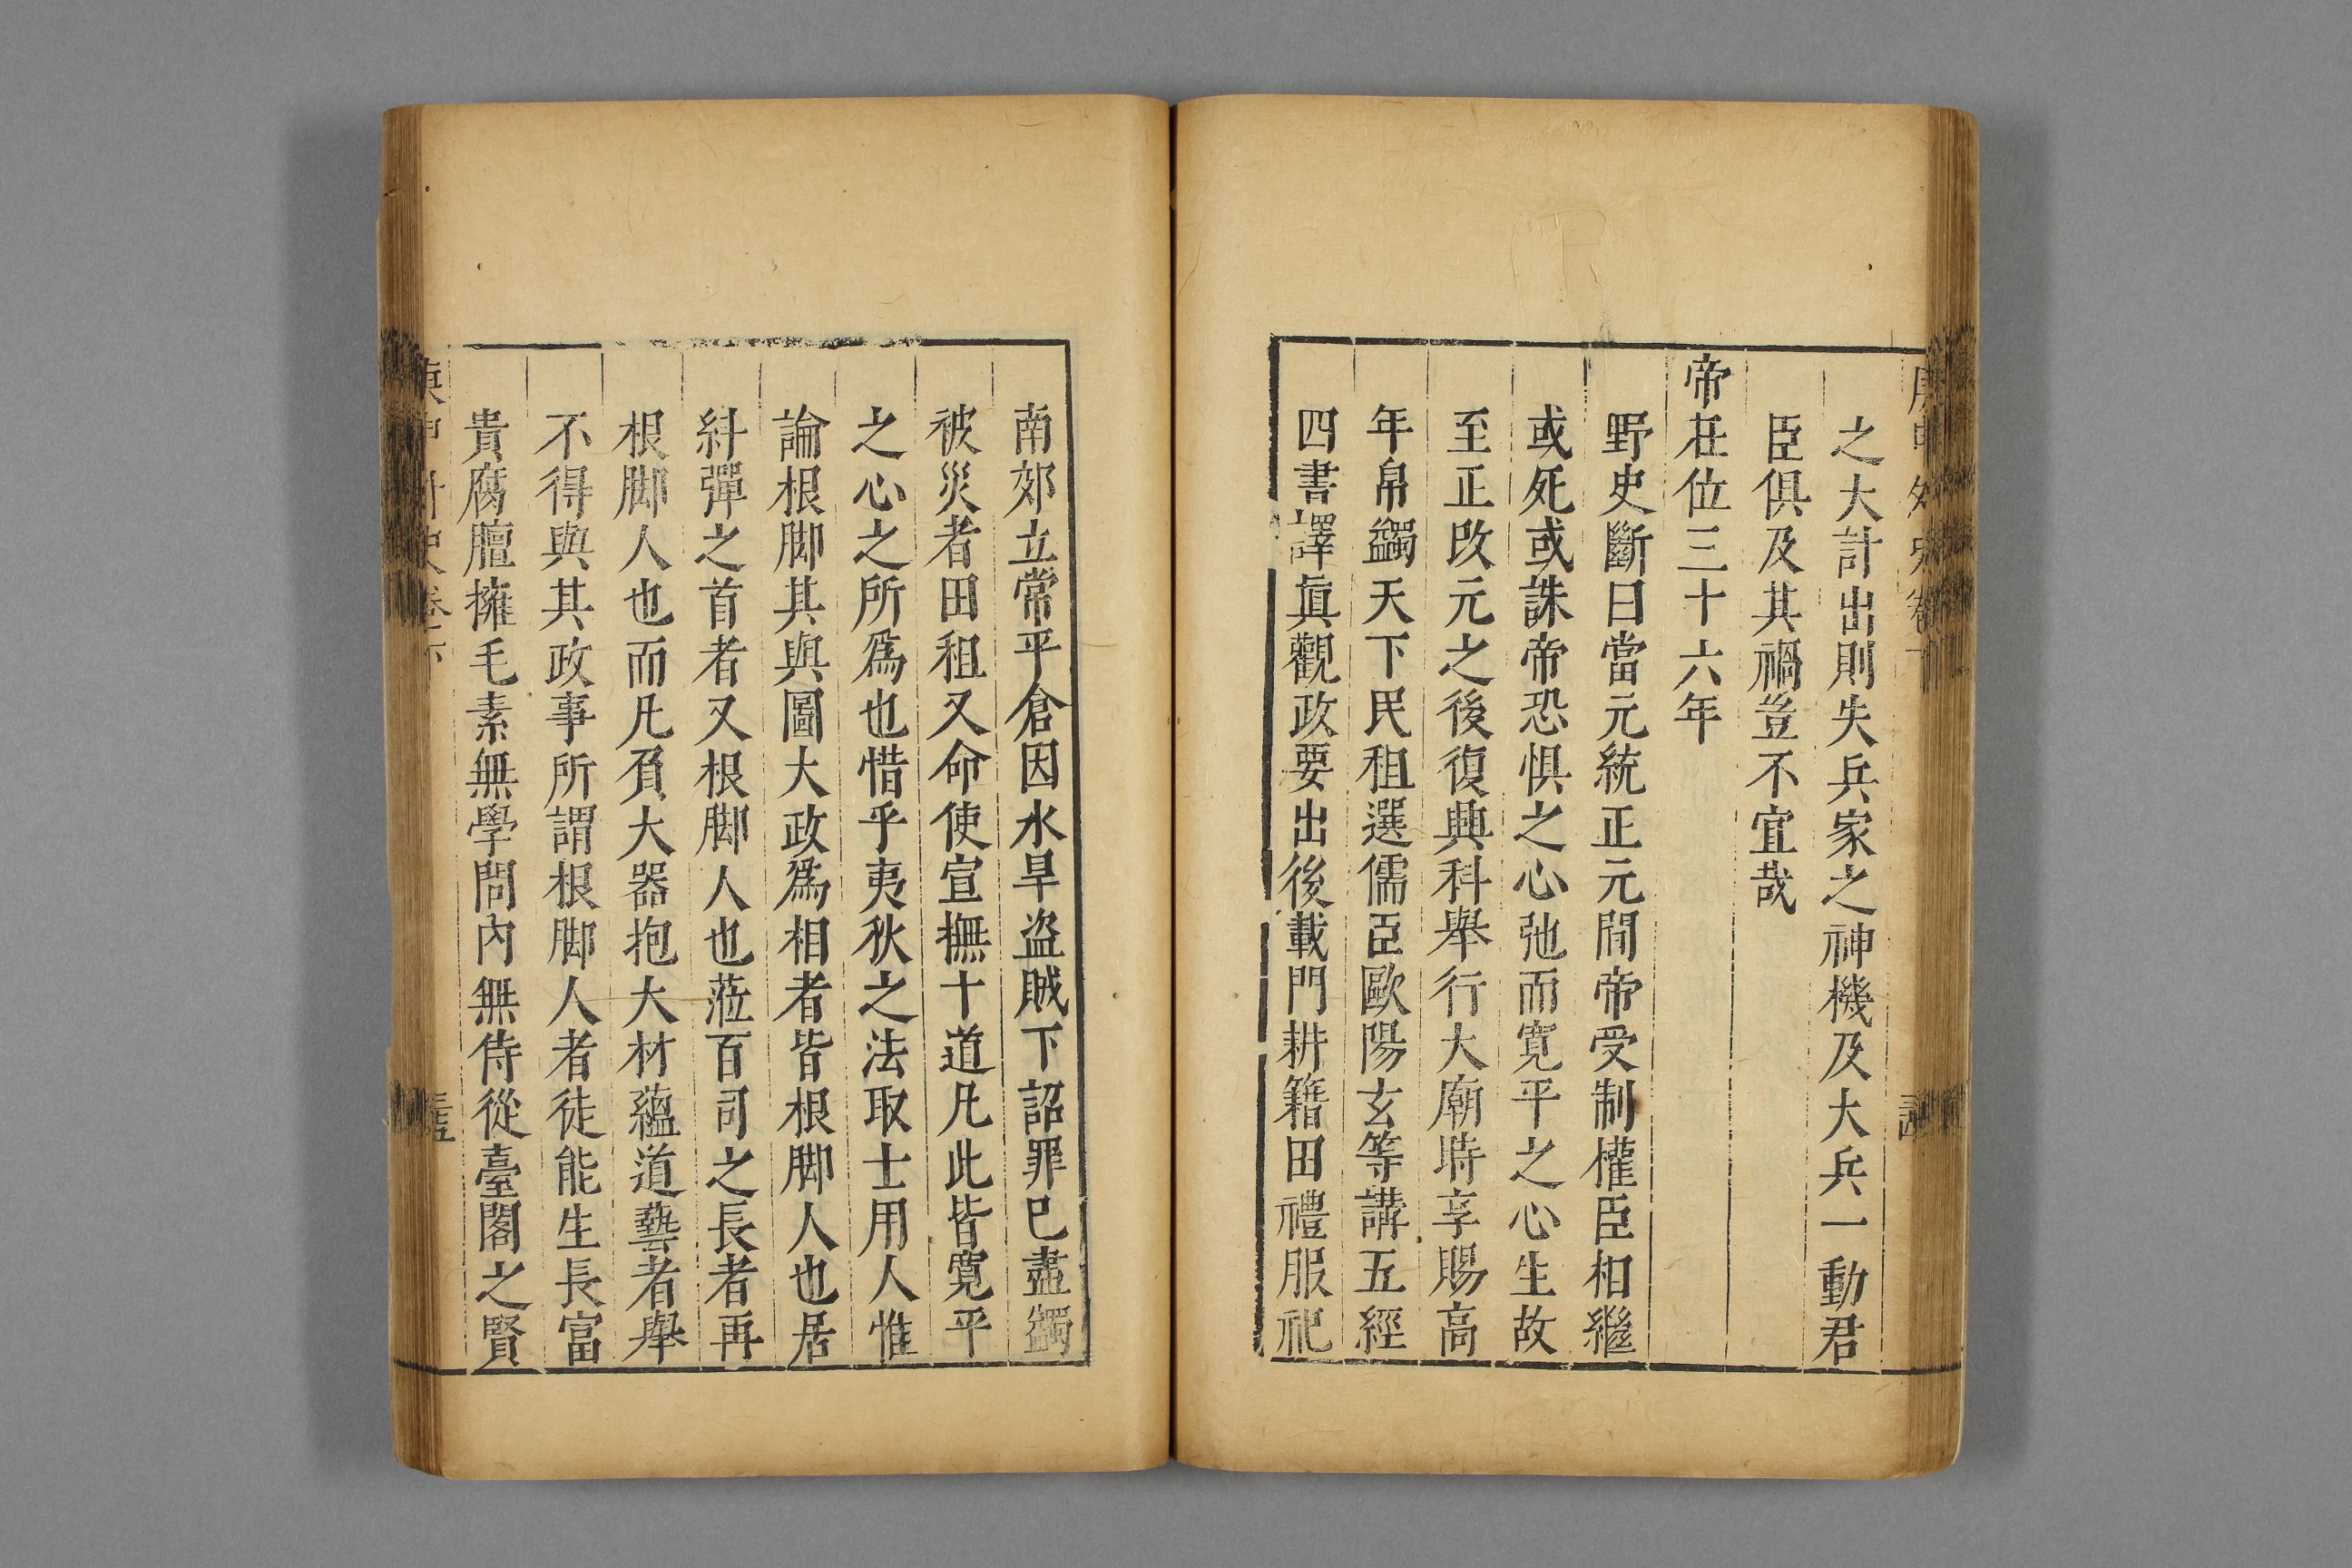 庚申外史卷下
之大計出則失兵家之神機及大兵一動君
臣俱及其禍豈不宜哉
帝在位三十六年
野史斷曰當元統正元間帝受制權臣相繼
或死或誅帝恐惧之心弛而寛平之心生故
至正改元之後復興科舉行大廟時享賜高
年帛蠲天下民租選儒臣歐陽玄等講五經
四書譯眞觀政要出後載門耕籍田禮服祀
南郊立常平倉因水旱盗賊下詔罪已盡蠲
被災者田租又命使宣撫十道凡此皆寛平
之心之所爲也惜乎夷狄之法取士用人惟
論根脚其與圖大政爲相者皆根脚人也居
紏彈之首者又根脚人也蒞百司之長者再
根脚人也而凡負大器抱大材蘊道藝者舉
不得與其政事所謂根脚人者徒能生長富
貴腐膻擁毛素無學問內無侍從臺閣之賢
庚申外史卷下